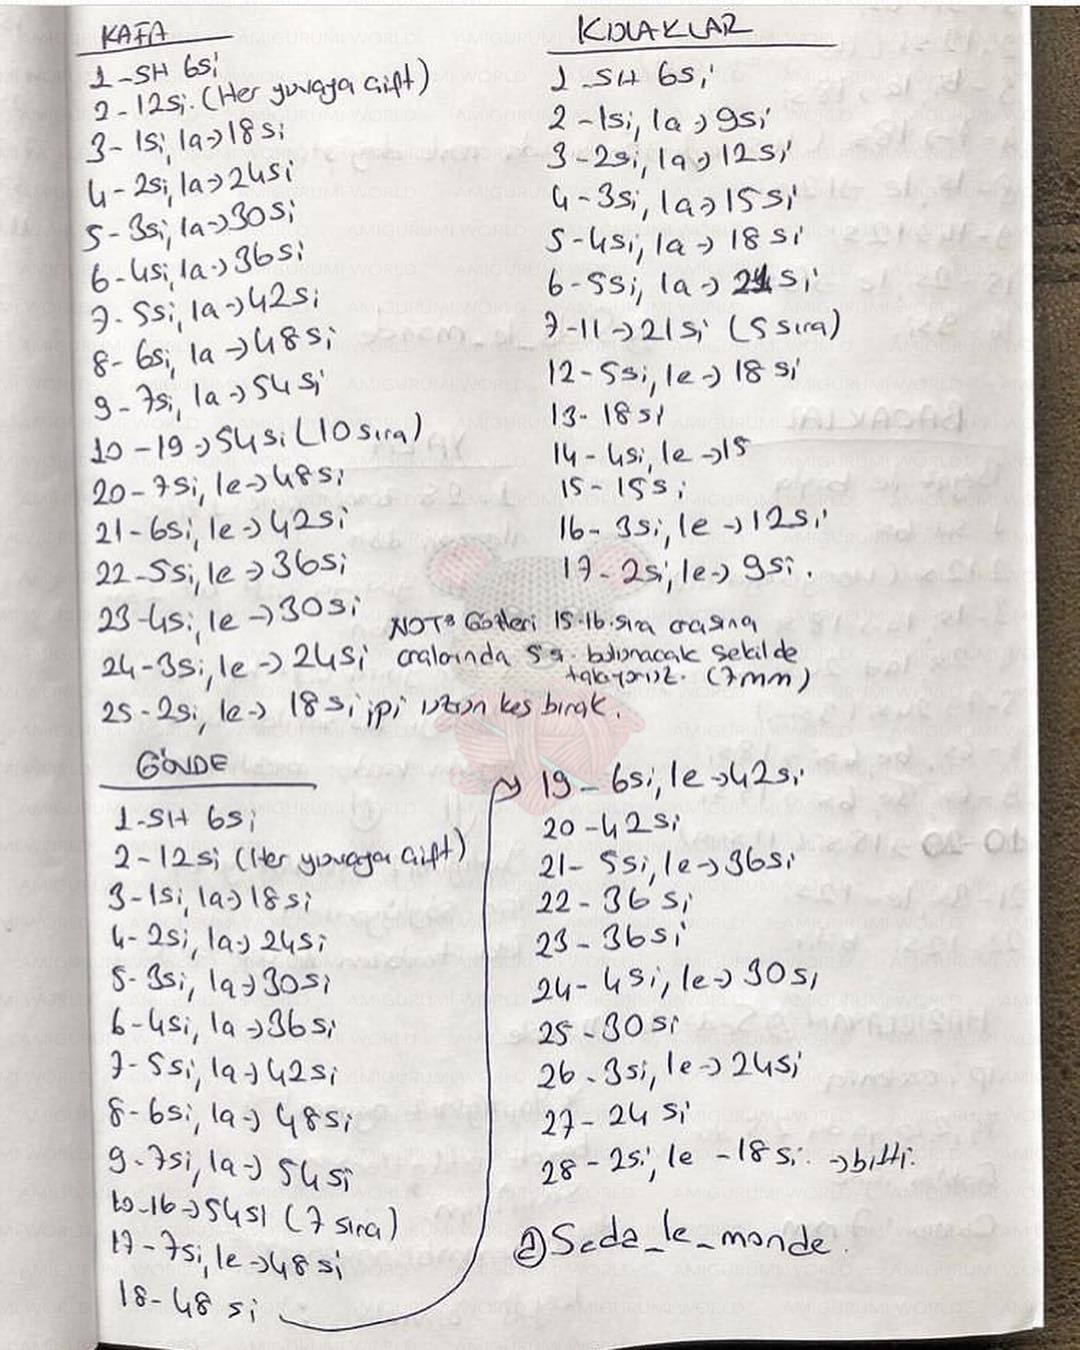 KAFA
1-SH 6si
2-12si. (Her yuvaya çift)
3-1si, 1a→18si
4-2si, 1a→24si
5-3si, 1a→30si
6-4si, 1a→36si
7-5si, 1a→42si
8-6si, 1a→48si
9-7si, 1a→54si
10-19→54si (10 sıra)
20-7si, 1e→48si
21-6si, 1e→42si
22-5si, 1e→36si
23-4si, 1e→30si
24-3si, 1e→24si
25-2si, 1e→ 18si ipi uzun kes bırak.
NOT: Gözleri 15-16. sıra arasına
aralarında 5 si. bulunacak şekilde
takıyoruz. (7mm)
KULAKLAR
1-SH 6si
2-1si, 1a→9si
3-2si, 1a→12si
4-3si, 1a→15si
5-4si, 1a→18si
6-5si, 1a→21si
7-11→21si (5 sıra)
12-5si, 1e→18si
13-18si
14-4si, 1e→15
15-15si
16-3si, 1e→12si
17-2si, 1e→9si.
GÖVDE
1-SH 6si
2-12si (Her yuvaya çift)
3-1si, 1a→18si
4-2si, 1a→24si
5-3si, 1a→30si
6-4si, 1a→36si
7-5si, 1a→42si
8-6si, 1a→48si
9-7si, 1a→54si
10-16→54si (7 sıra)
17-7si, 1e→48si
18-48si
19-6si, 1e→42si
20-42si
21-5si, 1e→36si
22-36si
23-36si
24-4si, 1e→30si
25-30si
26-3si, 1e→24si
27-24si
28-2si, 1e-18si. →bitti.
@Seda_le_monde.
AMIGURUMI WORLD